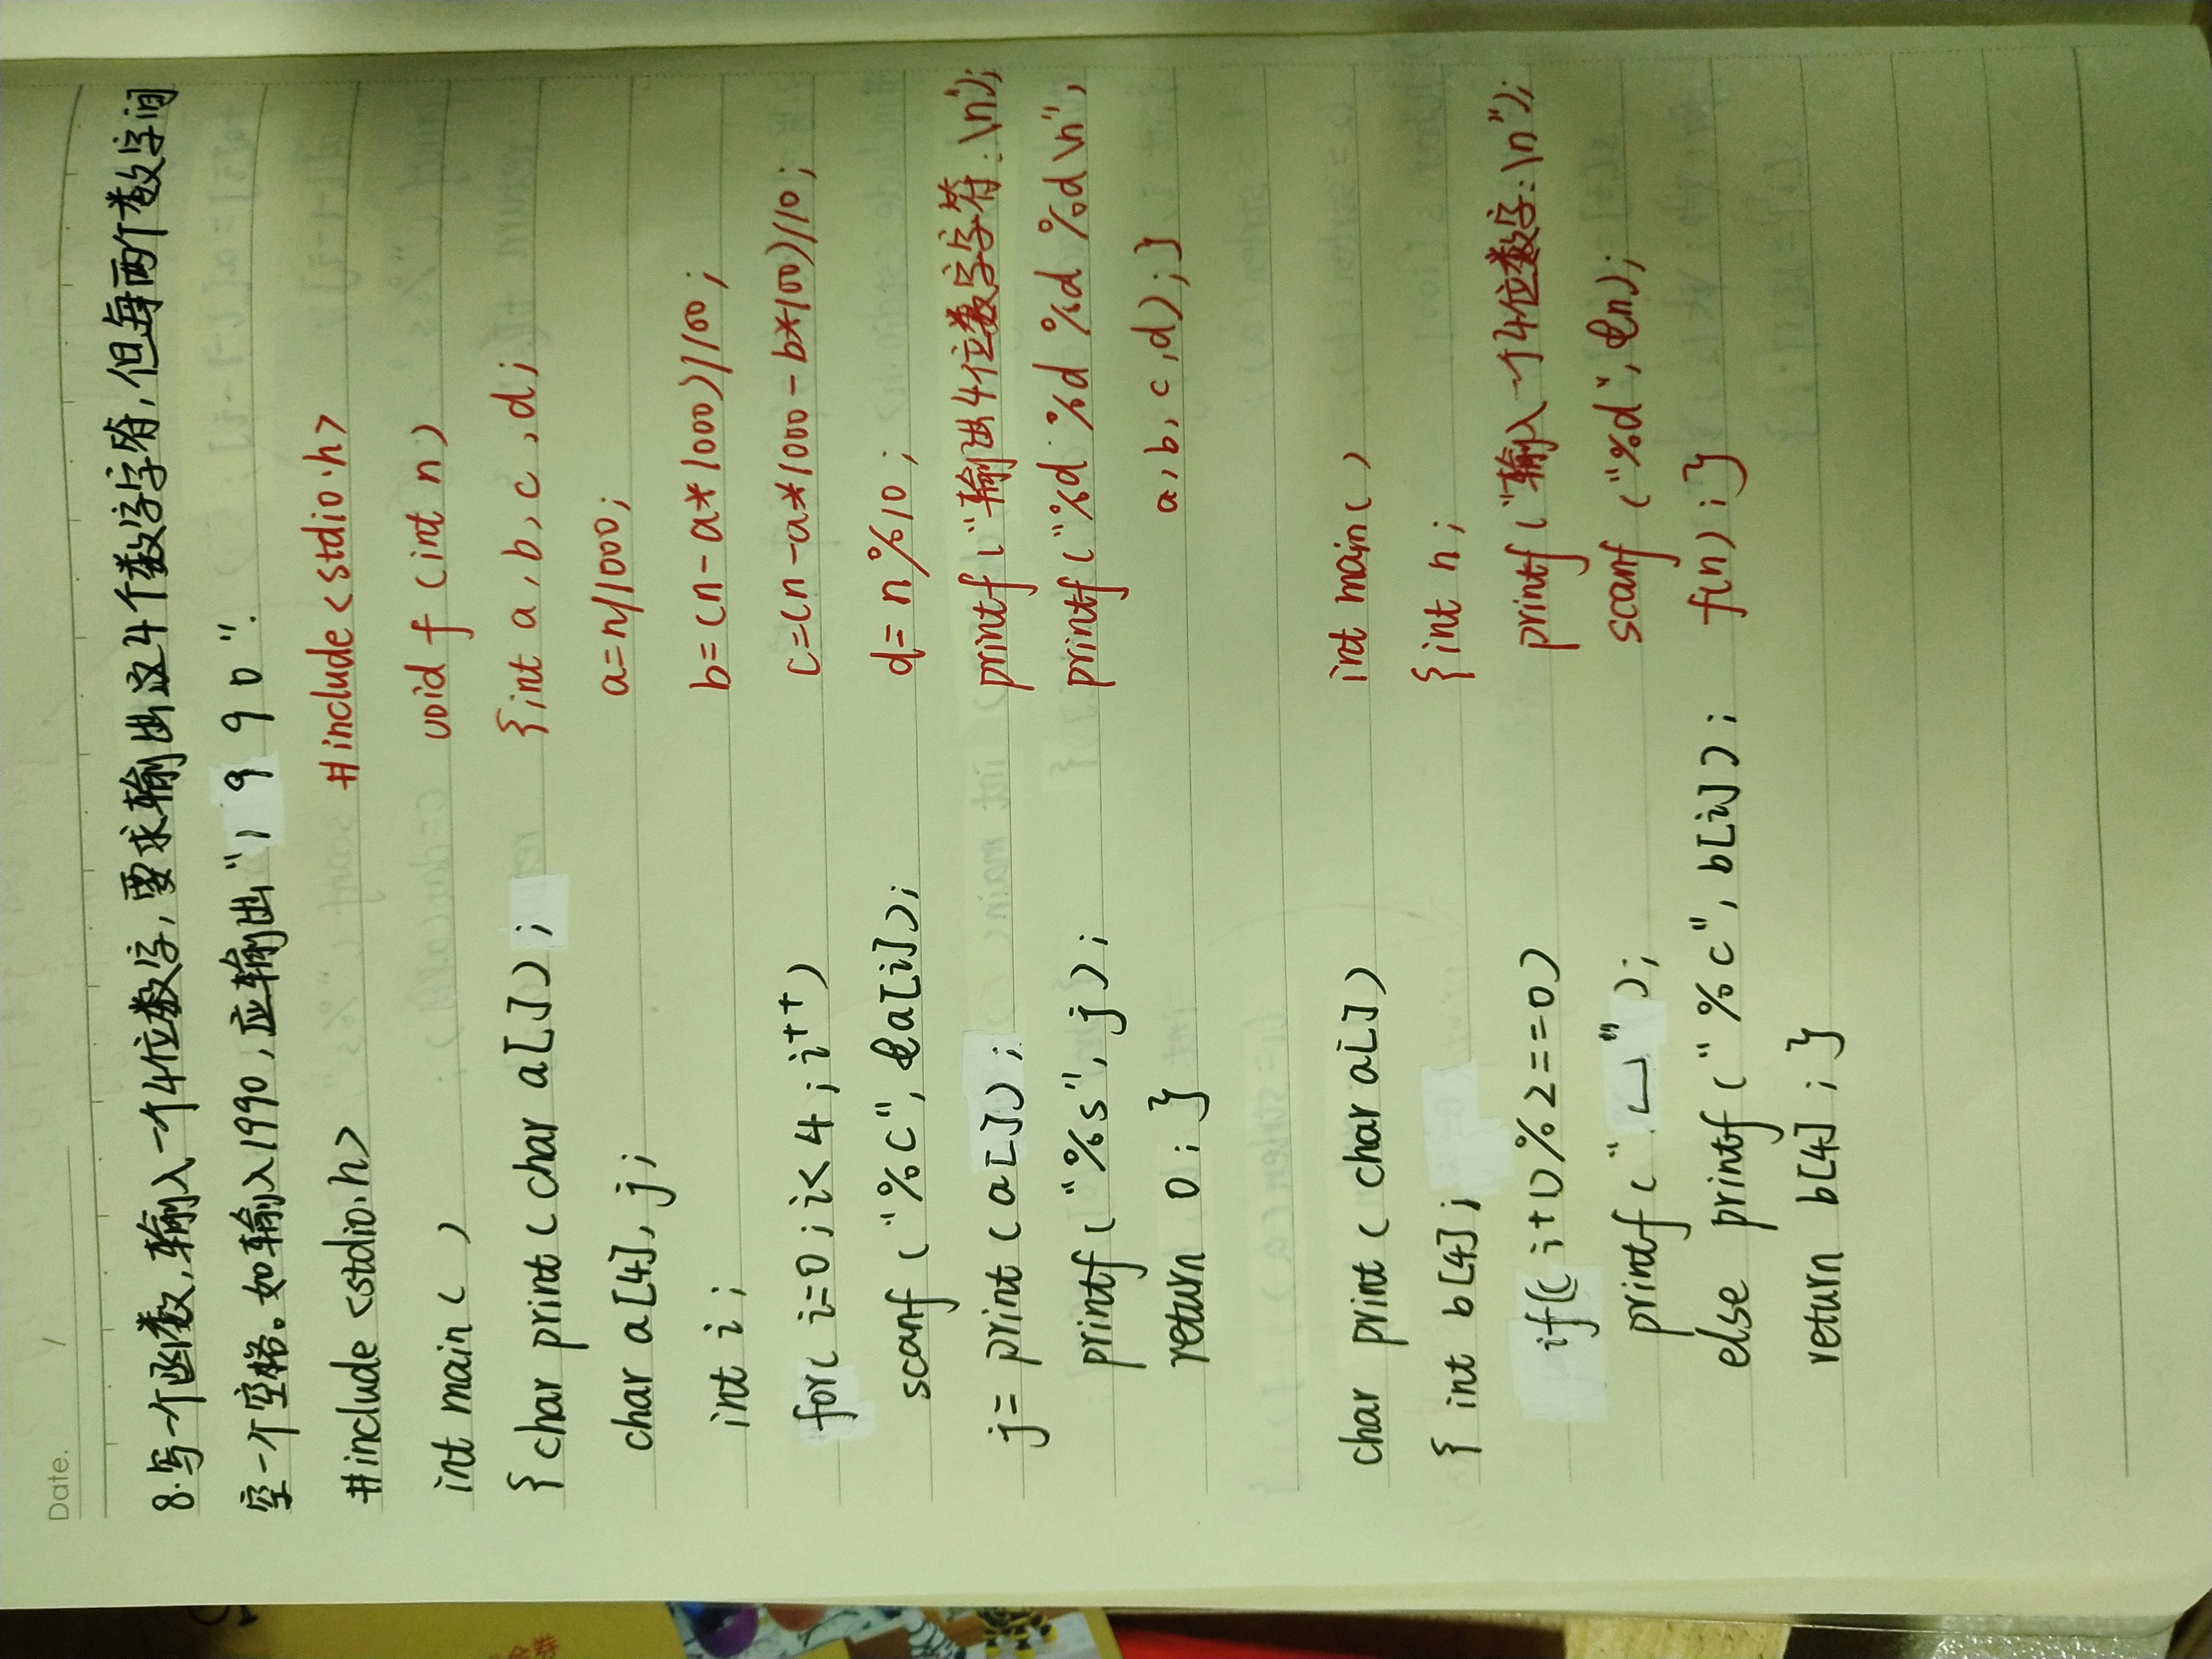 Date. /
8.写一个函数,输入一个4位数字,要求输出这4个数字字符,但每两个数字间
空一个空格。如输入1990,应输出"1 9 9 0".
#include<stdio.h>
int main()
{char print(char a[]);
char a[4],j;
int i;
for(i=0;i<4;i++)
scanf("%c",&a[i]);
j=print(a[]);
printf("%s",j);
return 0;}
char print(char a[])
{int b[4];
if((i+1)%2==0)
printf("␣");
else printf("%c",b[i]);
return b[4];}
#include<stdio.h>
void f(int n)
{int a,b,c,d;
a=n/1000;
b=(n-a*1000)/100;
c=(n-a*1000-b*100)/10;
d=n%10;
printf("输出4位数字字符:\n");
printf("%d %d %d %d\n",
a,b,c,d);}
int main()
{int n;
printf("输入一个4位数字:\n");
scanf("%d",&n);
f(n);}